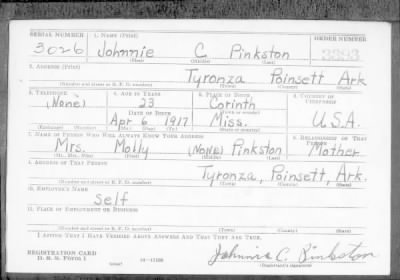 SERIAL NUMBER 1. NAME (Print) ORDER NUMBER
3026 Johnnie C Pinkston 3383
(First) (Middle) (Last)
2. ADDRESS (Print)
Tyronza Poinsett Ark
(Number and street or R. F. D. number) (Town) (County) (State)
3. TELEPHONE 4. AGE IN YEARS 5. PLACE OF BIRTH 6. COUNTRY OF CITIZENSHIP
(None) 23 Corinth
DATE OF BIRTH (Town or county)
Apr 6 1917 Miss. U.S.A.
(Exchange) (Number) (Mo.) (Day) (Yr.) (State or country)
7. NAME OF PERSON WHO WILL ALWAYS KNOW YOUR ADDRESS 8. RELATIONSHIP OF THAT PERSON
Mrs. Molly (NONE) Pinkston Mother
(Mr., Mrs., Miss) (First) (Middle) (Last)
9. ADDRESS OF THAT PERSON
Tyronza, Poinsett, Ark.
(Number and street or R. F. D. number) (Town) (County) (State)
10. EMPLOYER'S NAME
Self
11. PLACE OF EMPLOYMENT OR BUSINESS
(Number and street or R. F. D. number) (Town) (County) (State)
I AFFIRM THAT I HAVE VERIFIED ABOVE ANSWERS AND THAT THEY ARE TRUE.
REGISTRATION CARD Johnnie C. Pinkston
D. S. S. FORM 1 (Registrant's signature)